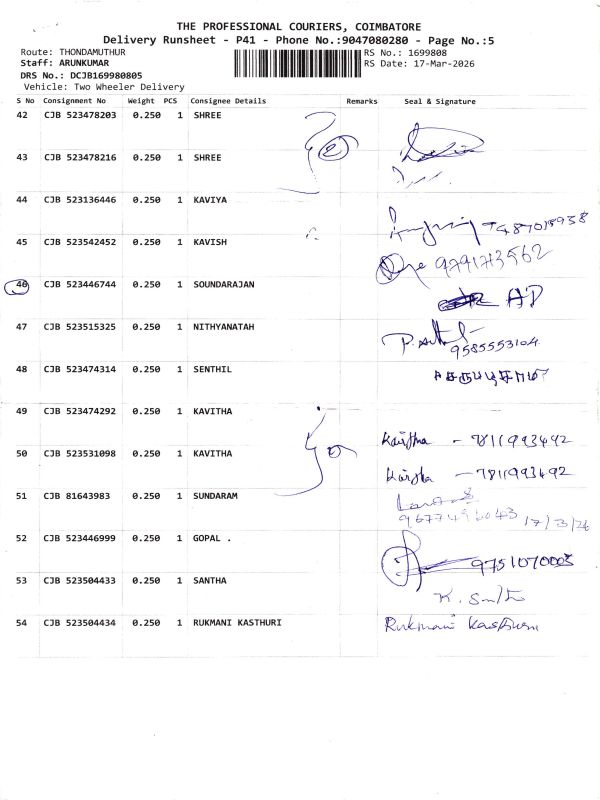 THE PROFESSIONAL COURIERS, COIMBATORE
Delivery Runsheet - P41 - Phone No.:9047080280 - Page No.:5
Route: THONDAMUTHUR RS No.: 1699808
Staff: ARUNKUMAR RS Date: 17-Mar-2026
DRS No.: DCJB169980805
Vehicle: Two Wheeler Delivery
S No Consignment No Weight PCS Consignee Details Remarks Seal & Signature
42 CJB 523478203 0.250 1 SHREE
2
43 CJB 523478216 0.250 1 SHREE
44 CJB 523136446 0.250 1 KAVIYA
45 CJB 523542452 0.250 1 KAVISH
9791713562
46 CJB 523446744 0.250 1 SOUNDARAJAN
AD
47 CJB 523515325 0.250 1 NITHYANATAH
9585553104
48 CJB 523474314 0.250 1 SENTHIL
49 CJB 523474292 0.250 1 KAVITHA
Kavitha - 7811993492
50 CJB 523531098 0.250 1 KAVITHA 2
Kavitha - 7811993492
51 CJB 81643983 0.250 1 SUNDARAM
17/3/26
52 CJB 523446999 0.250 1 GOPAL .
9751070003
53 CJB 523504433 0.250 1 SANTHA
54 CJB 523504434 0.250 1 RUKMANI KASTHURI Rukmani Kasthuri